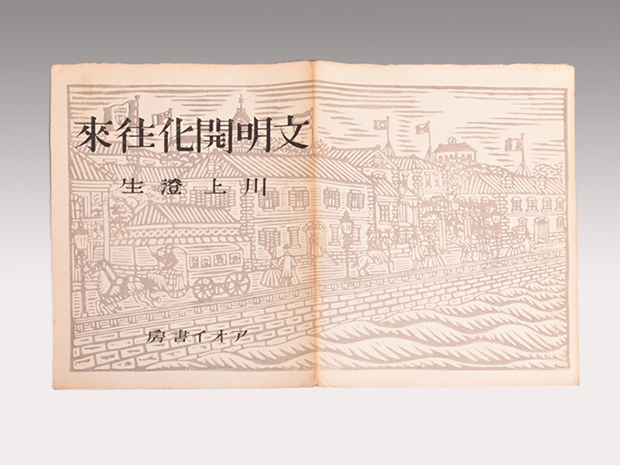 文明開化往來
川上澄生
アオイ書房